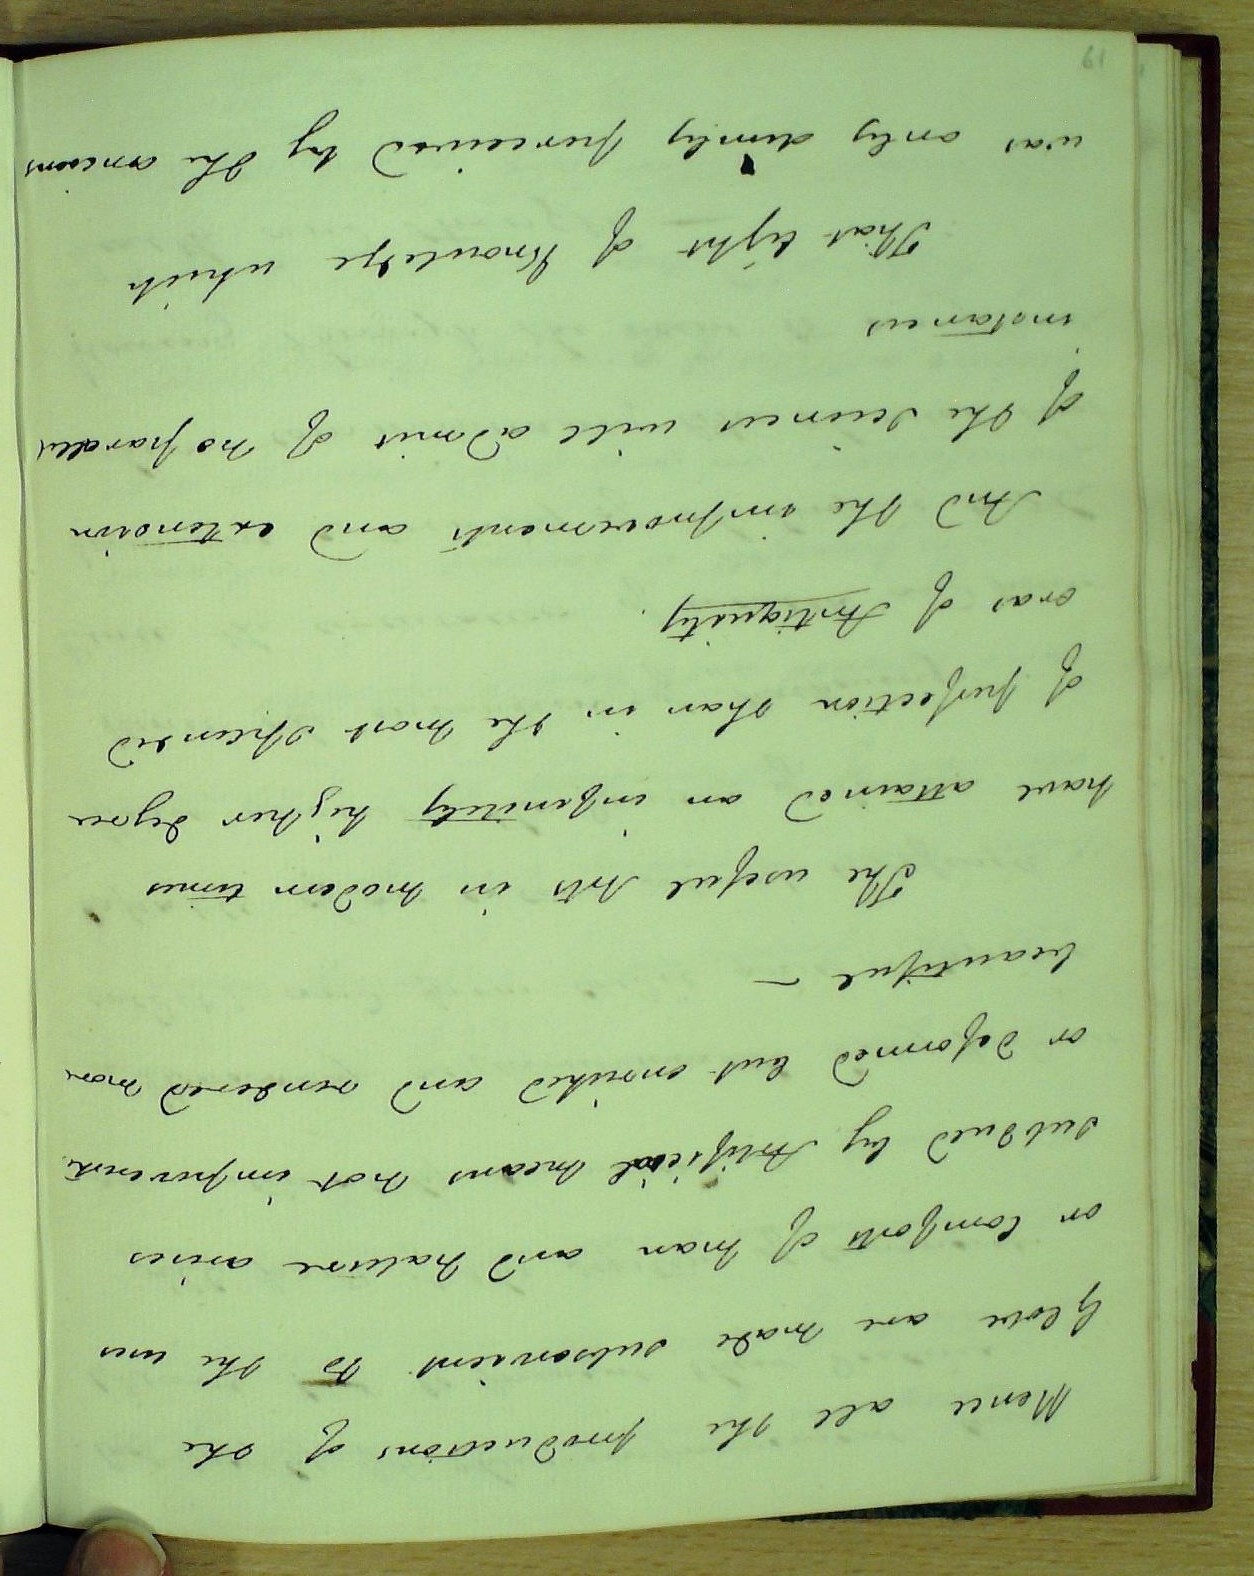 Hence all the productions of the
Globe are made subservient to the uses
or Comforts of man and nature arises
subdued by Artificial means not impoverished
or deformed but enriched and rendered more
beautiful –
The useful Arts in modern times
have attained an infinitely higher degree
of perfection than in the most splendid
eras of Antiquity.
And the improvements and extension
of the Sciences will admit of no parallel
instances
That light of Knowledge which
was only dimly perceived by the ancients
61